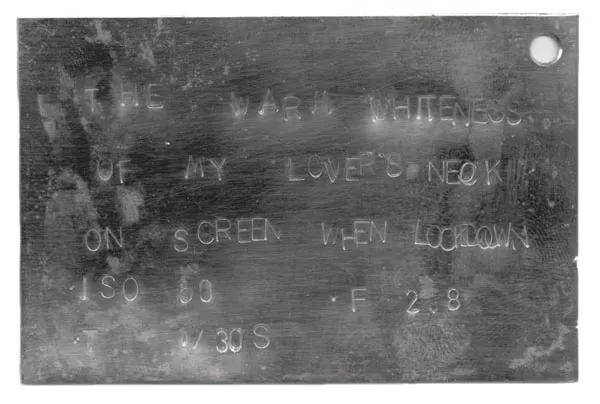 THE WARM WHITENESS
OF MY LOVER'S NECK
ON SCREEN WHEN LOCKDOWN
ISO 80 F 2.8
T 1/30S